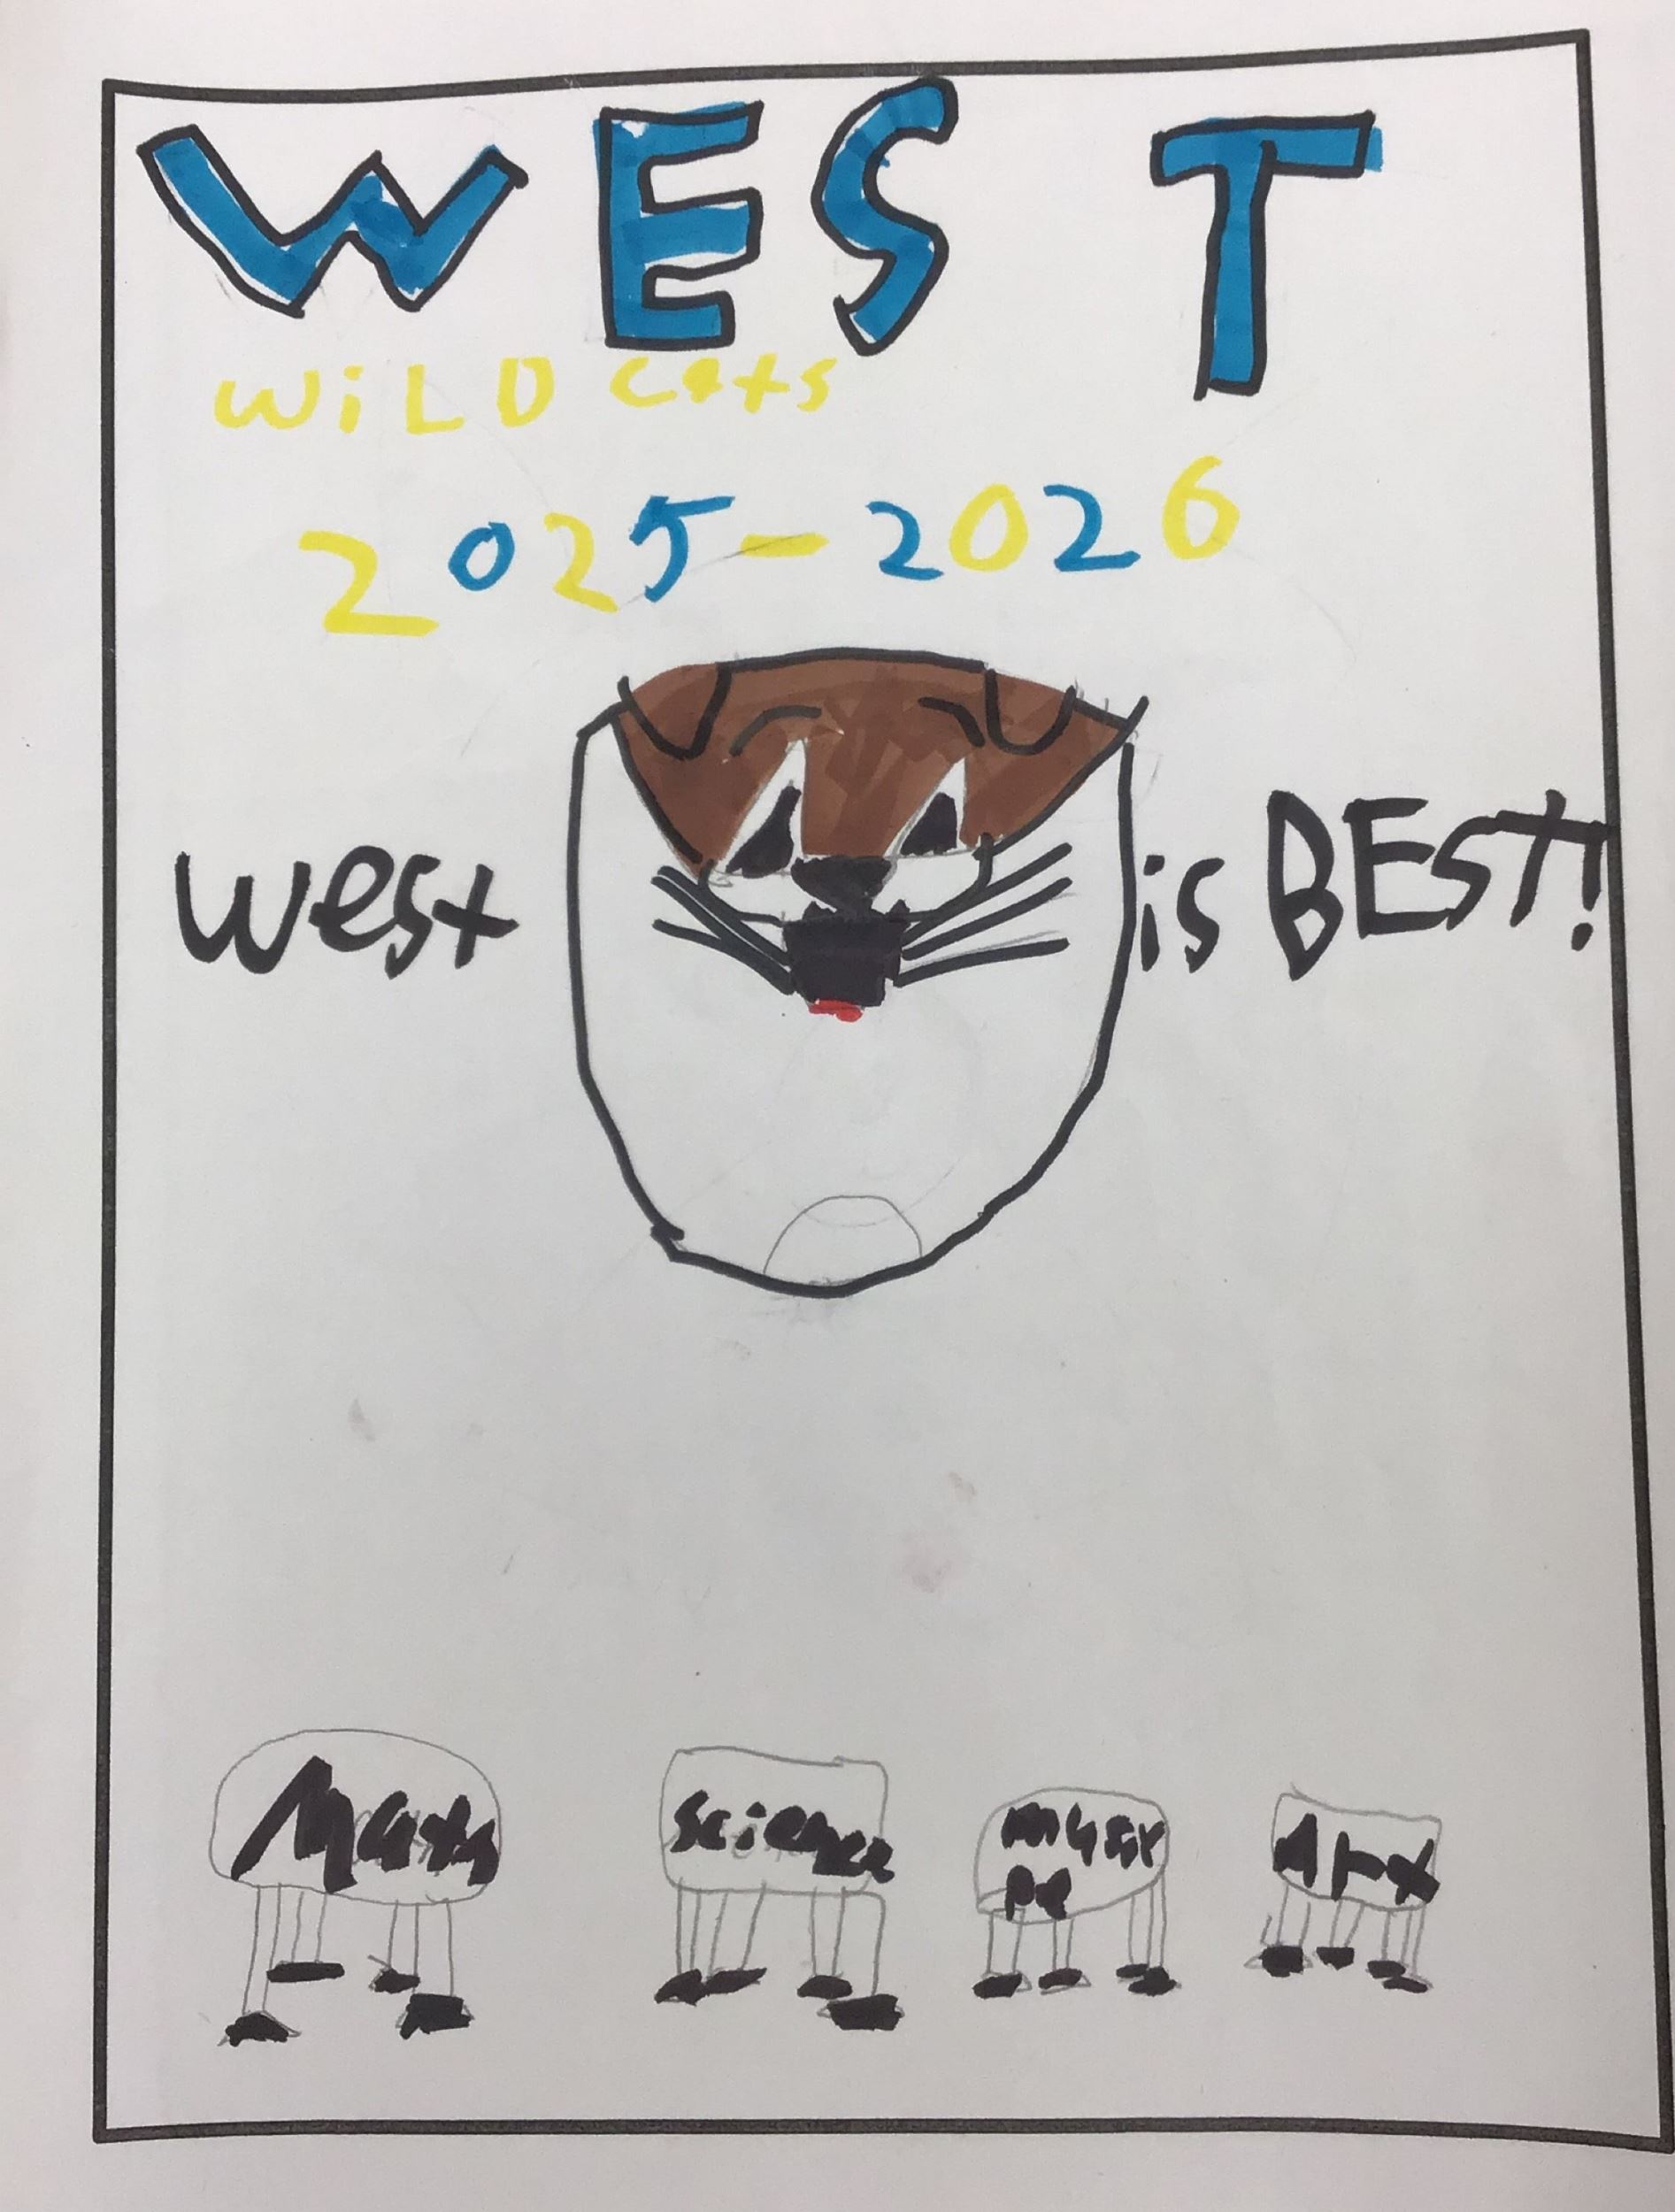 WEST
WiLD cats
2025-2026
west is BEST!
Math
science
music
pe
Art